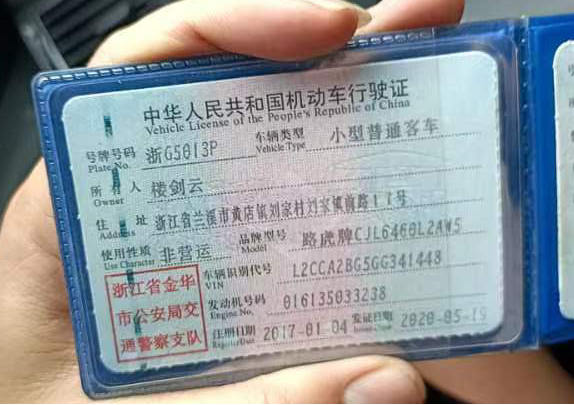 中华人民共和国机动车行驶证
Vehicle License of the People's Republic of China
号牌号码 浙G5013P 车辆类型 小型普通客车
Plate No. Vehicle Type
所有人 楼剑云
Owner
住址 浙江省兰溪市黄店镇刘家村刘家镇前路11号
Address
使用性质 非营运 品牌型号 路虎牌CJL6460L2AW5
Use Character Model
浙江省金华
市公安局交
通警察支队
车辆识别代号 L2CCA2BG5GG341448
VIN
发动机号码 016135033238
Engine No.
注册日期 2017-01-04 发证日期 2020-05-19
Register Date Issue Date